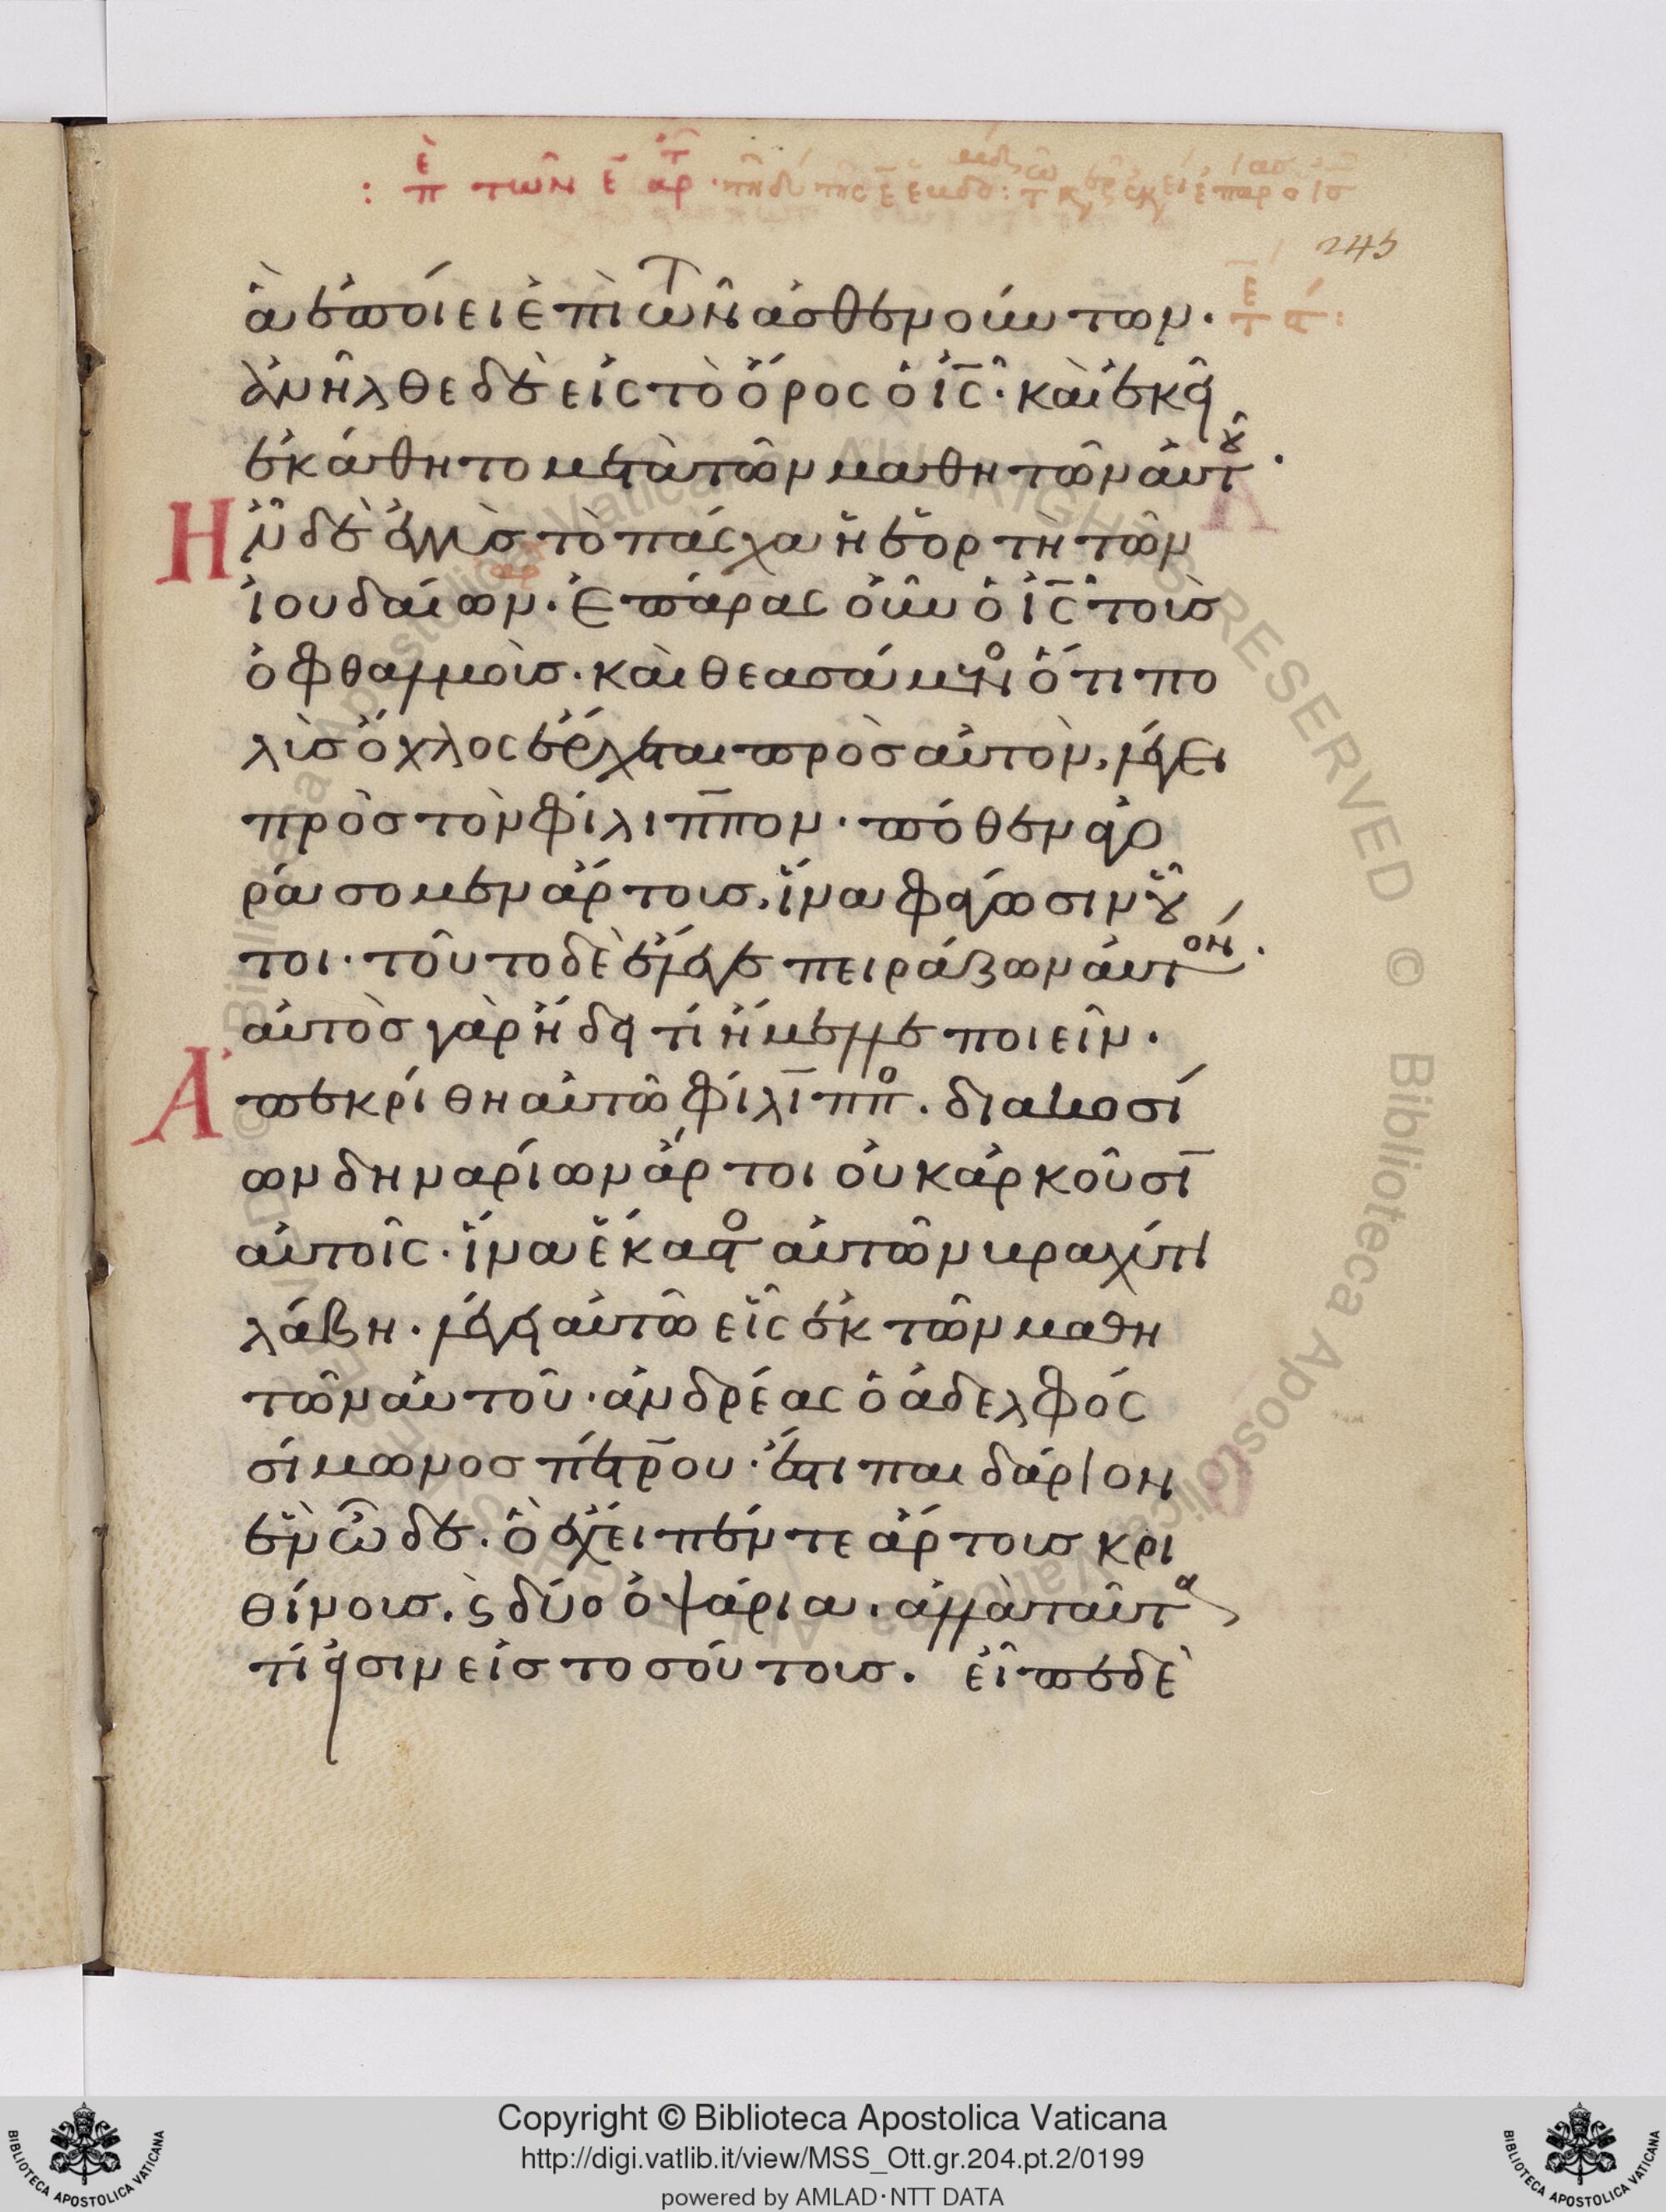 : ἐπ τῶν ε ἀρτ
245
ἃ ἐποίει ἐπὶ τῶν ἀσθενούντων.
ἀνῆλθε δὲ εἰς τὸ ὄρος ὁ ις̅. καὶ ἐκεῖ
ἐκάθητο μετὰ τῶν μαθητῶν αὐτοῦ.
Ην δὲ ἐγγὺς τὸ πάσχα ἡ ἑορτὴ τῶν
ἰουδαίων. Ἐπάρας οὖν ὁ ις̅ τοὺς
ὀφθαλμοὺς. καὶ θεασάμενος ὅτι πο
λὺς ὄχλος ἔρχεται πρὸς αὐτὸν, λέγει
πρὸς τὸν φίλιππον. πόθεν ἀγο
ράσομεν ἄρτους, ἵνα φάγωσιν οὗ
τοι. τοῦτο δὲ ἔλεγε πειράζων αὐτόν.
αὐτὸς γὰρ ἤδει τί ἤμελλε ποιεῖν.
Ἀπεκρίθη αὐτῶ φίλιππος. διακοσί
ων δηναρίων ἄρτοι οὐκ ἀρκοῦσιν
αὐτοῖς. ἵνα ἕκαστος αὐτῶν βραχύ τι
λάβη. λέγει αὐτῶ εἷς ἐκ τῶν μαθη
τῶν αὐτοῦ. ἀνδρέας ὁ ἀδελφός
σίμωνος πέτρου. ἔστι παιδάριον
ἓν ὧδε. ὃ ἔχει πέντε ἄρτους κρι
θίνους. ϛ δύο ὀψάρια. ἀλλὰ ταῦτα
τί ἐστιν εἰς τοσούτους. εἶπε δὲ
© Biblioteca Apostolica Vaticana ALL RIGHTS RESERVED
BIBLIOTECA APOSTOLICA VATICANA
Copyright © Biblioteca Apostolica Vaticana
http://digi.vatlib.it/view/MSS_Ott.gr.204.pt.2/0199
powered by AMLAD·NTT DATA
BIBLIOTECA APOSTOLICA VATICANA